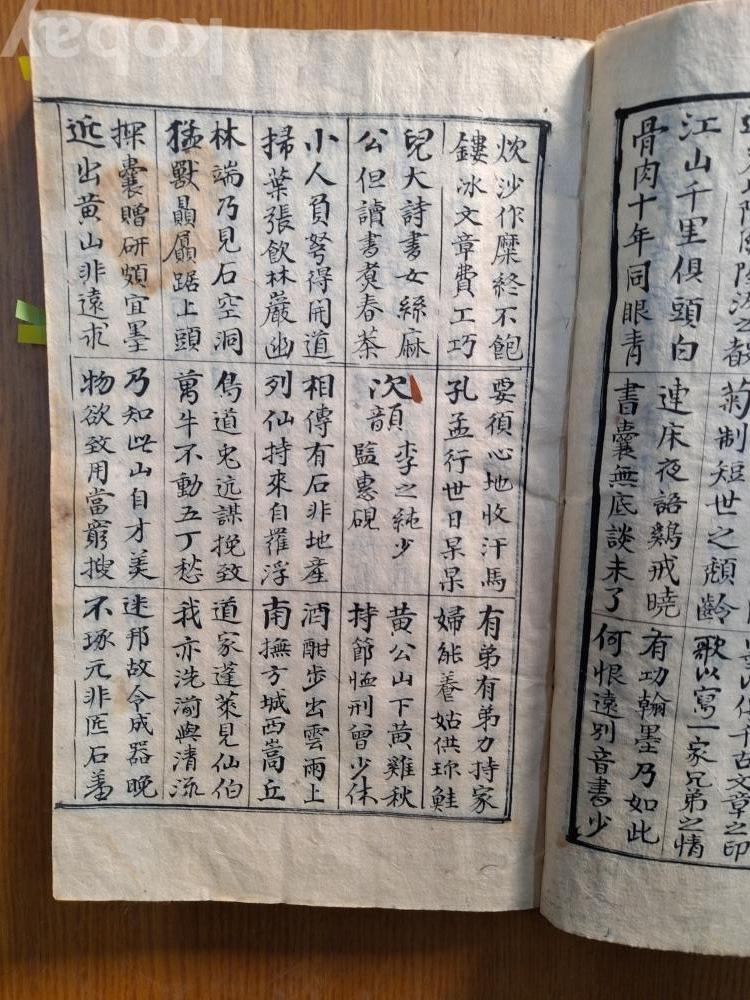 Kobay
菊制短世之頹齡
千古文章之印
歌以寫一家兄弟之情
江山千里俱頭白
骨肉十年同眼青
連床夜語鷄戒曉
書囊無底談未了
有功翰墨乃如此
何恨遠別音書少
炊沙作糜終不飽
鏤冰文章費工巧
要須心地收汗馬
孔孟行世日杲杲
有弟有弟力持家
婦能養姑供珎鮭
兒大詩書女絲麻
公但讀書煑春茶
次韻 李之純少
監惠硯
黃公山下黃雞秋
持節恤刑曾少休
小人負弩得開道
掃葉張飲林巖幽
相傳有石非地產
列仙持來自羅浮
酒酣步出雲雨上
南撫方城西嵩丘
林端乃見石空洞
猛獸贔屭踞上頭
鳥道兔迒謀挽致
萬牛不動五丁愁
道家蓬萊見仙伯
我亦洗湔與清流
探囊贈硏頗宜墨
近出黃山非遠求
乃知此山自才美
物欲致用當窮搜
迷邦故令成器晚
不琢元非匠石羞